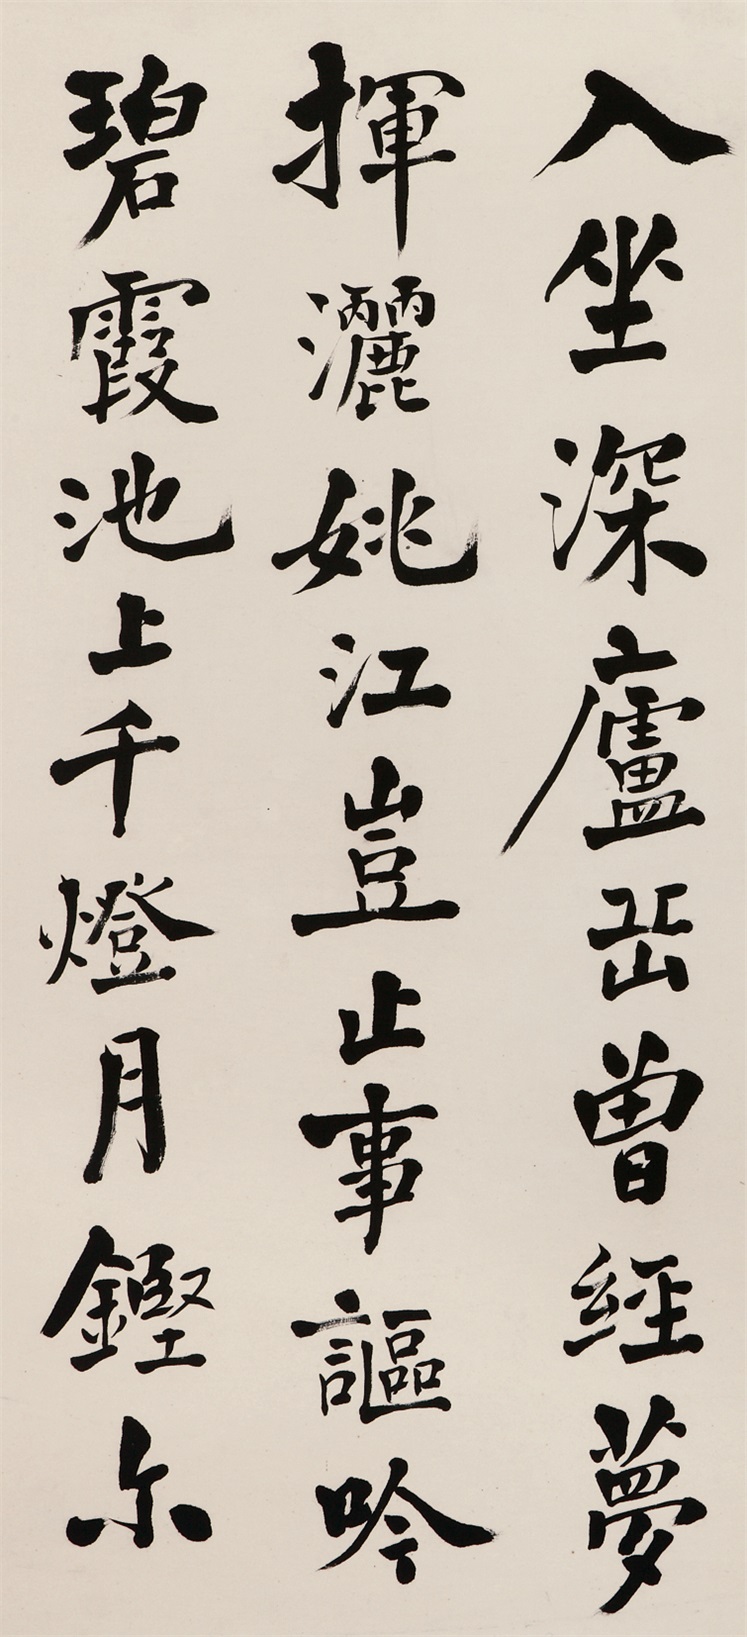 入坐深廬岳曾經夢
揮灑姚江豈止事謳吟
碧霞池上千燈月鏗尔